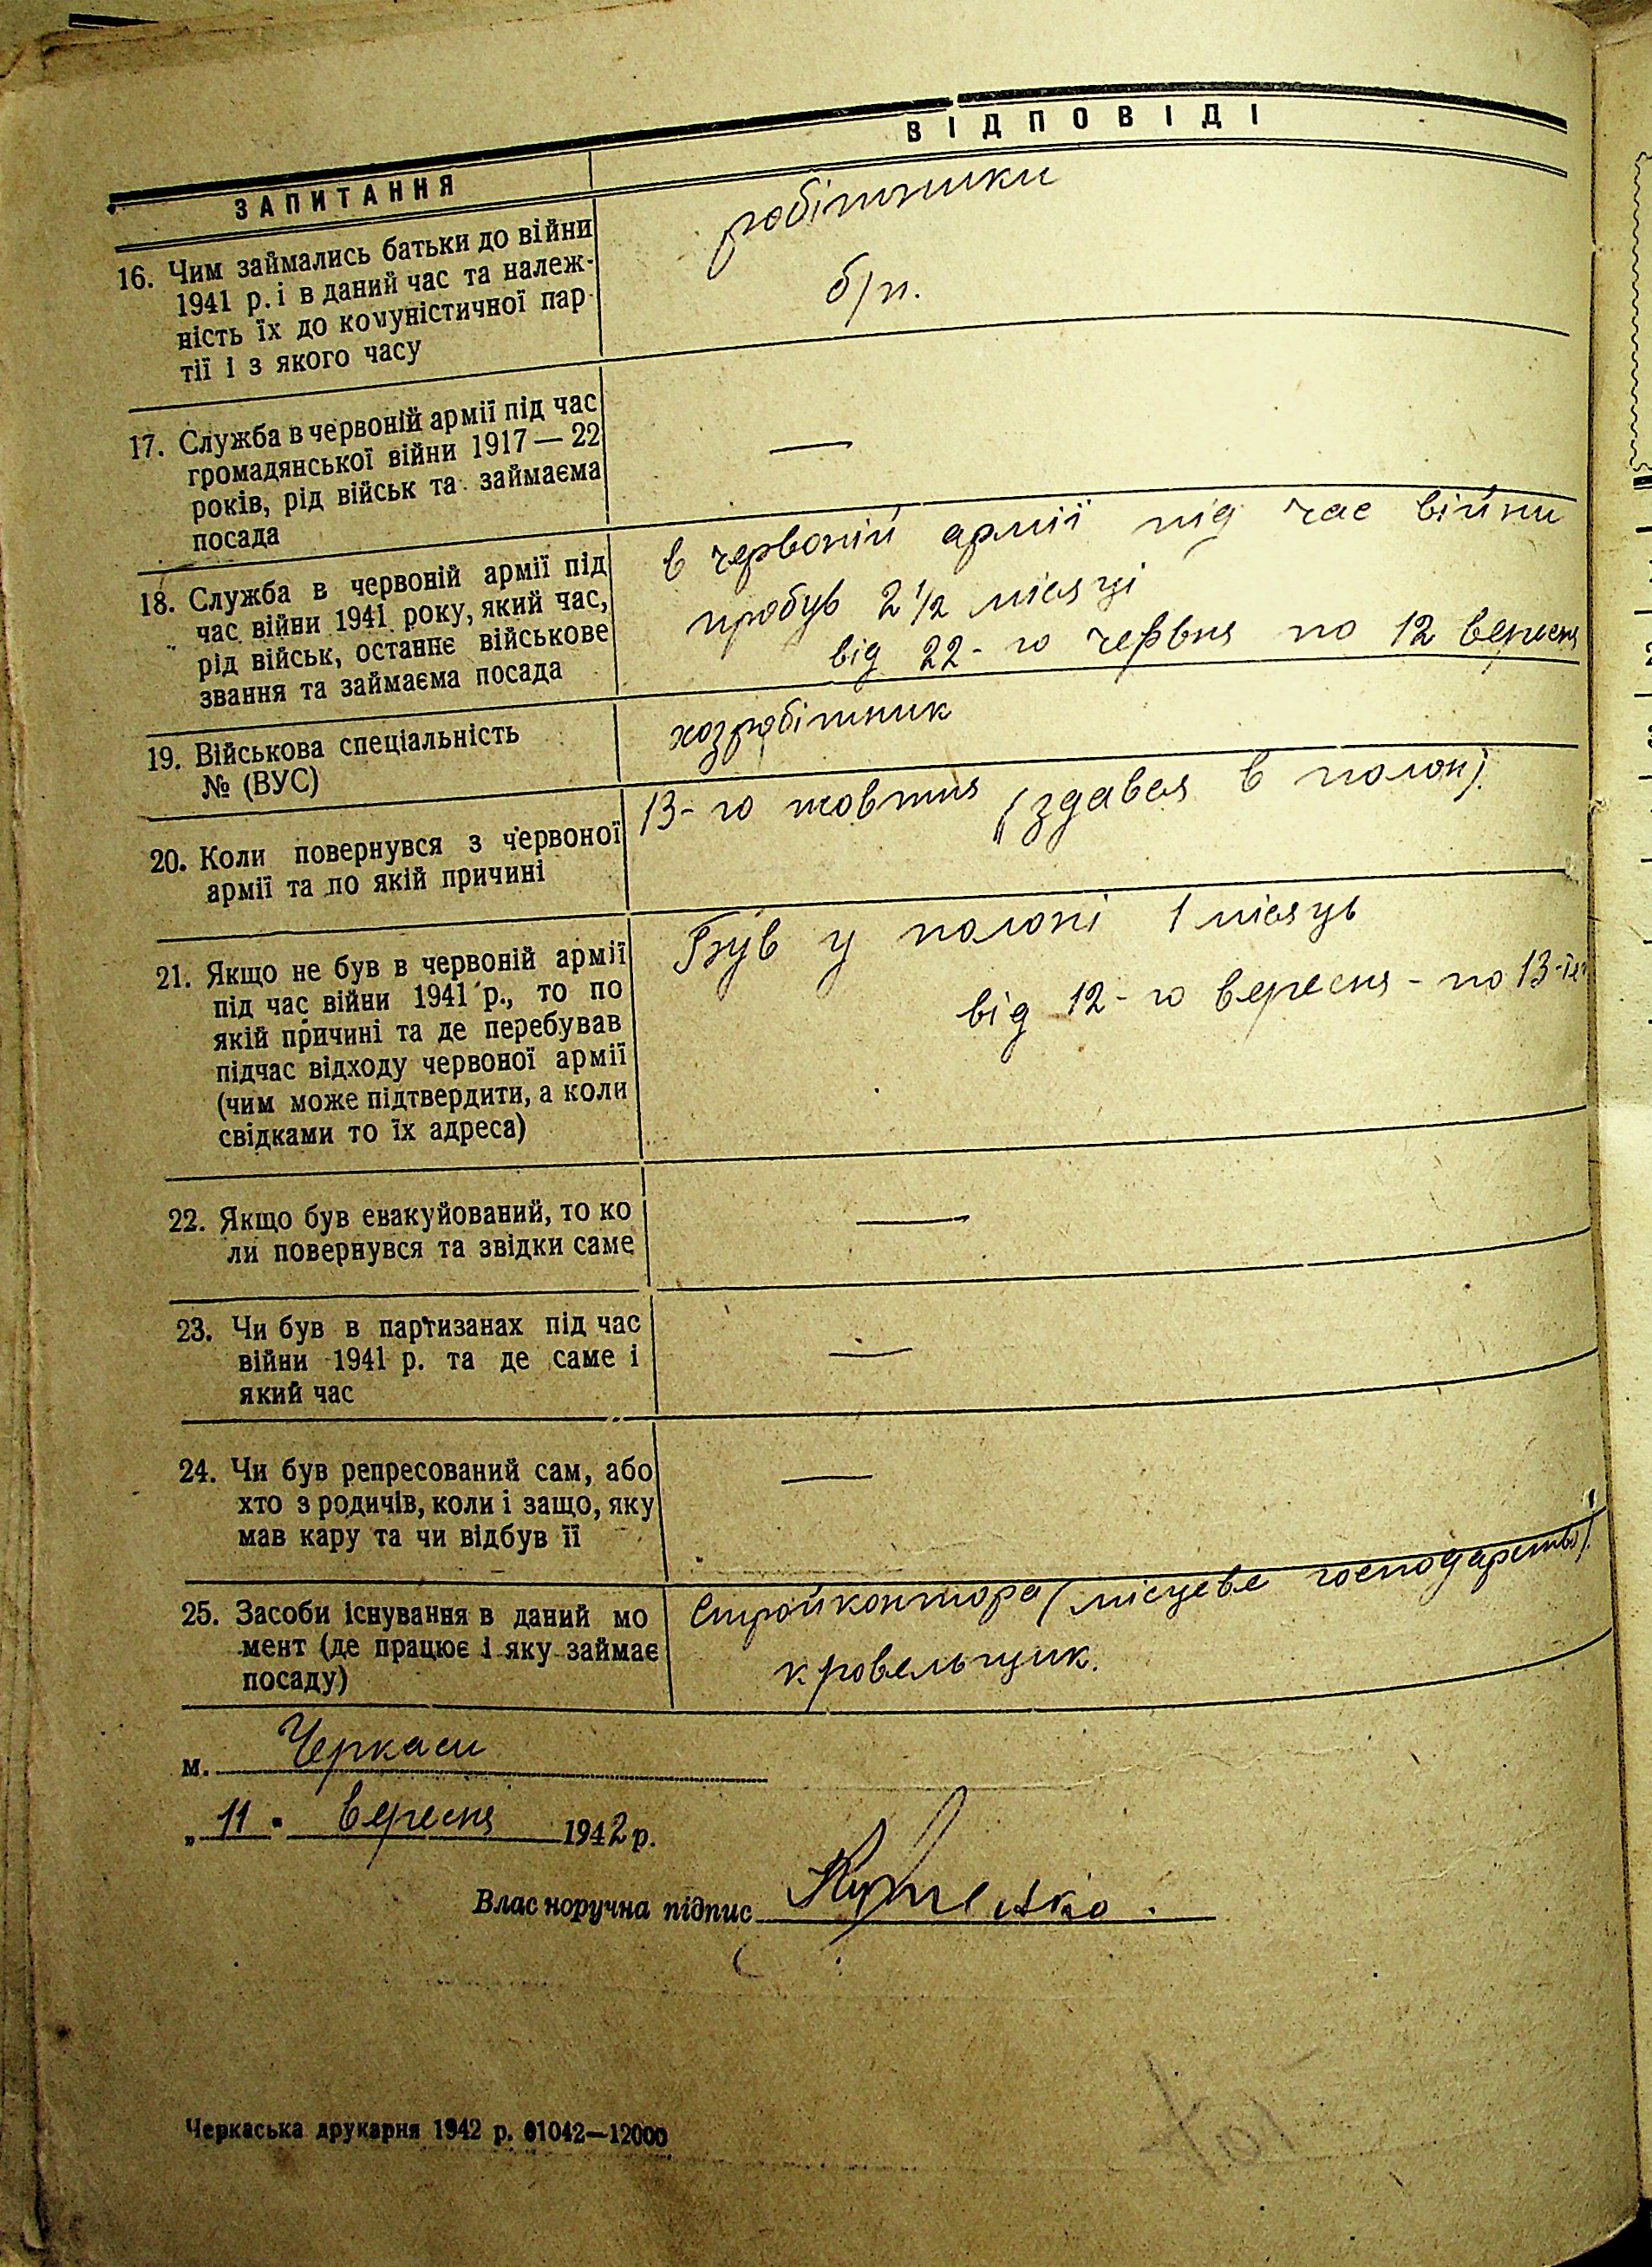 ЗАПИТАННЯ
ВІДПОВІДІ
16. Чим займались батьки до війни
1941 р. і в даний час та належ-
ність їх до комуністичної пар-
тії і з якого часу
робітники
б/п.
17. Служба в червоній армії під час
громадянської війни 1917 — 22
років, рід військ та займаєма
посада
—
18. Служба в червоній армії під
час війни 1941 року, який час,
рід військ, останнє військове
звання та займаєма посада
в червоній армії під час війни
пробув 2 1/2 місяці
від 22-го червня по 12 вересня
19. Військова спеціальність
№ (ВУС)
хозробітник
20. Коли повернувся з червоної
армії та по якій причині
13-го жовтня (здався в полон).
21. Якщо не був в червоній армії
під час війни 1941 р., то по
якій причині та де перебував
підчас відходу червоної армії
(чим може підтвердити, а коли
свідками то їх адреса)
Був у полоні 1 місяць
від 12-го вересня - по 13-
22. Якщо був евакуйований, то ко
ли повернувся та звідки саме
—
23. Чи був в партизанах під час
війни 1941 р. та де саме і
який час
—
24. Чи був репресований сам, або
хто з родичів, коли і защо, яку
мав кару та чи відбув її
—
25. Засоби існування в даний мо
мент (де працює і яку займає
посаду)
Стройконтора (місцеве господарство).
кровельщик.
м. Черкаси
„11" вересня 1942 р.
Власноручна підпис
Черкаська друкарня 1942 р. 01042—12000